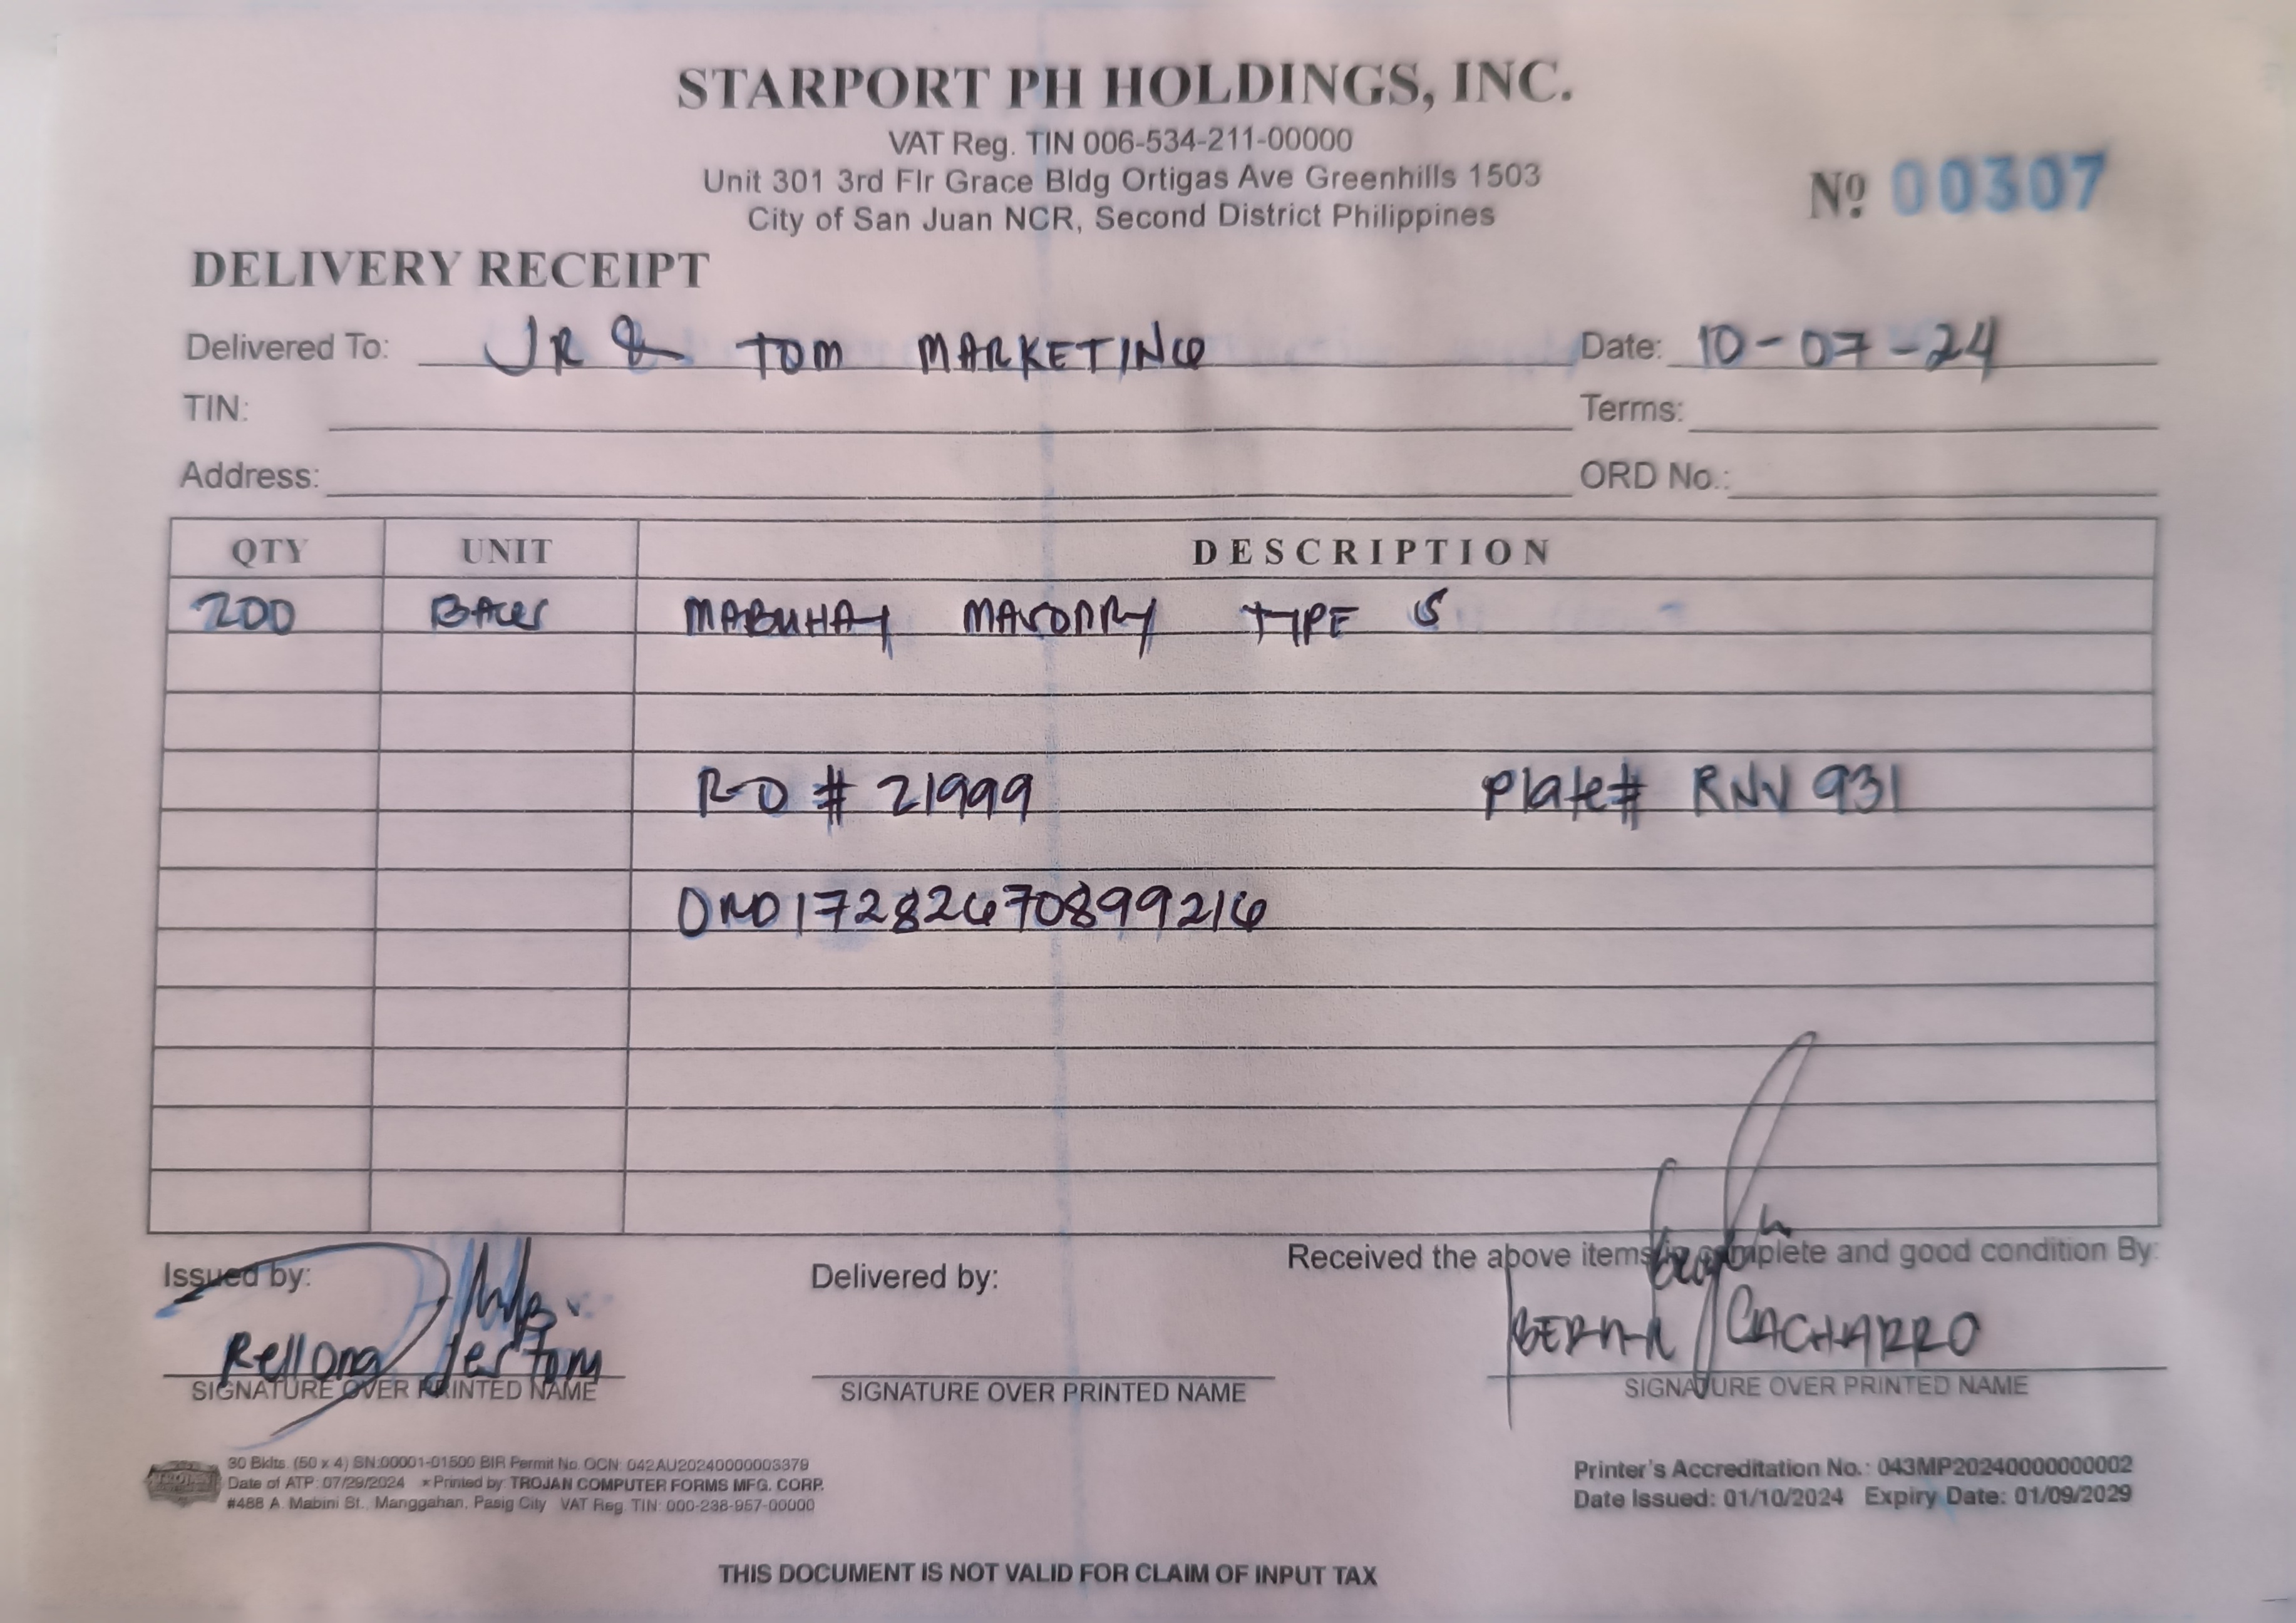 STARPORT PH HOLDINGS, INC.
VAT Reg. TIN 006-534-211-00000
Unit 301 3rd Flr Grace Bldg Ortigas Ave Greenhills 1503
City of San Juan NCR, Second District Philippines
Nº 00307
DELIVERY RECEIPT
Delivered To: JR & TOM MARKETING Date: 10-07-24
TIN: Terms:
Address: ORD No.:
QTY UNIT DESCRIPTION
200 BAGS MABUHAY MASONRY TYPE S
RO # 21999 Plate# RNV 931
ORD17282670899216
Issued by: Delivered by: Received the above items in complete and good condition By:
Rellong Jestom BERNA CACHARRO
SIGNATURE OVER PRINTED NAME SIGNATURE OVER PRINTED NAME SIGNATURE OVER PRINTED NAME
30 Bklts. (50 x 4) SN:00001-01500 BIR Permit No. OCN: 042AU20240000003379
Date of ATP: 07/29/2024 * Printed by: TROJAN COMPUTER FORMS MFG. CORP.
#488 A. Mabini St., Manggahan, Pasig City VAT Reg. TIN: 000-238-957-00000
Printer's Accreditation No.: 043MP20240000000002
Date Issued: 01/10/2024 Expiry Date: 01/09/2029
THIS DOCUMENT IS NOT VALID FOR CLAIM OF INPUT TAX